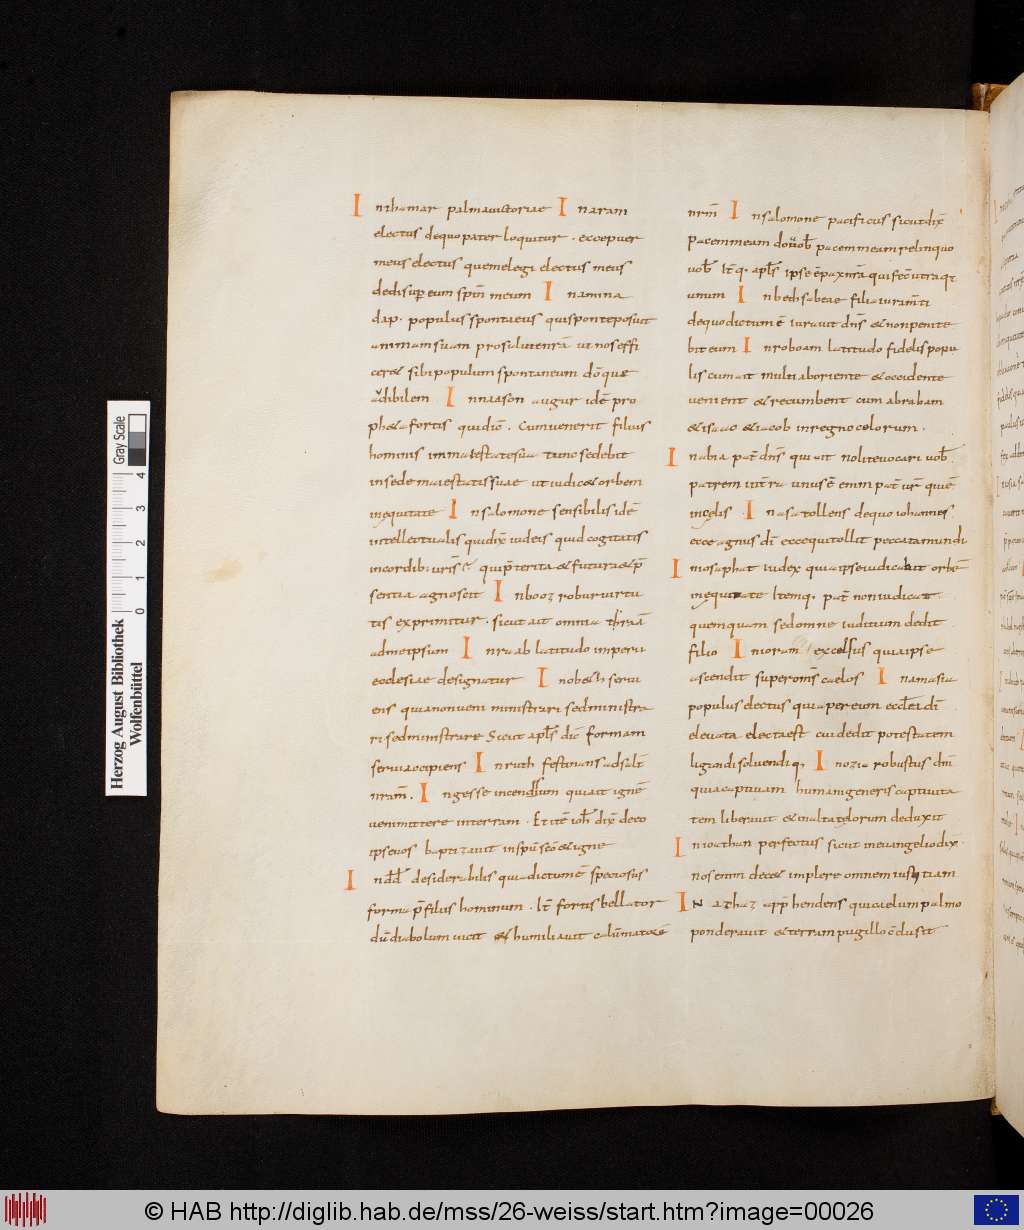 In thamar palma uictoriae In aram
electus de quo pater loquitur · ecce puer
meus electus quem elegi electus meus
dedi sup eum spm̄ meum In amina
dap· populus spontaeus qui sponte posuit
animam suam pro salute nrā ut nos effi
ceret sibi populum spontaneum dō que
adibilem In naason augur idē pro
pheta fortis qui diō . Cum uenerit filius
hominis in maiestate sua tunc sedebit
in sede maiestatis suae ut iudicet orbem
in equitate In salomone sensibilis idē
intellectualis qui dix̄ iudeis quid cogitatis
in cordib; uris̄ et qui p̄terita et futura et p̄
sentia agnoscit In booz robur uirtu
tis exprimitur · sicut ait omnia
ad me ipsum In raab latitudo imperii
ecclesiae designatur In obeth serui
ens quia non ueni ministrari sed ministra
ri sed ministrare Sicut apls̄ dic̄ formam
serui accipiens In ruth festinans ad salt̄
nram̄. In gesse incendium quia it ignē
ueni mittere in terram · Et itē ioh̄ dix̄ deco
ipse uos baptizauit in spū scō et igne
In dd̄ desiderabilis qui a dictum ē speciosus
forma p̄ filius hominum . It̄ fortis bellator
dū diabolum uicit et humiliauit calūmatorē
nrm̄ In salomone pacificus sicut dix̄
pacem meam do uob̄ pacem meam relinquo
uob̄ It̄ q· apls̄ ipse ē pax nra qui fec̄ utraq;
unum In bethsabeae filia iuram̄ti
de quo dictum ē iurauit dns̄ et non penite
bit eum In roboam latitudo fidelis popu
lis cum ait multi ab oriente et occidente
uenient et recumbent cum abraham
et isaac et iacob in regno celorum .
In abia pat̄ dns̄ qui ait nolite uocari uob̄
patrem in tr̄ra unus ē enim pat̄ ur̄ qui ē
in celis · In asa tollens de quo iohannes
ecce agnus dī ecce qui tollit peccata mundi
In iosaphat iudex quia ipse iudicabit orbē
in equitate Itemq· pat̄ non iudicat
quemquam sed omne iuditium dedit
filio In ioram excelsus quia ipse
ascendit super oms̄ caelos In amasia
populus electus quia per eum eccl̄eia dī
eleuata electa est cui dedit potestatem
ligandi soluendi q, In ozia robustus dnī
quia captiuam humani generis captiuita
tem liberauit et in alta celorum deduxit
In ioathan perfectus sicut in euangelio dix̄ .
nos enim decet implere omnem iustitiam
IN achaz app̄hendens qui caelum palmo
ponderauit et terram pugillo c̄clusit
Herzog August Bibliothek
Wolfenbüttel
0 1 2 3 4
Gray Scale
© HAB http://diglib.hab.de/mss/26-weiss/start.htm?image=00026